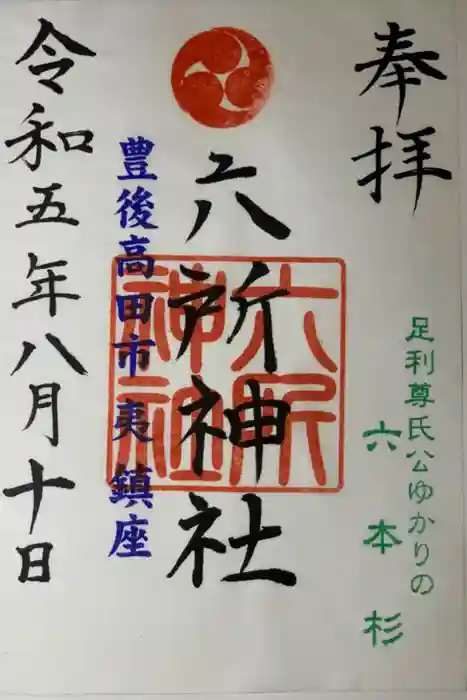 奉拝
足利尊氏公ゆかりの
六本杉
六所神社
六所神社
豊後高田市夷鎮座
令和五年八月十日